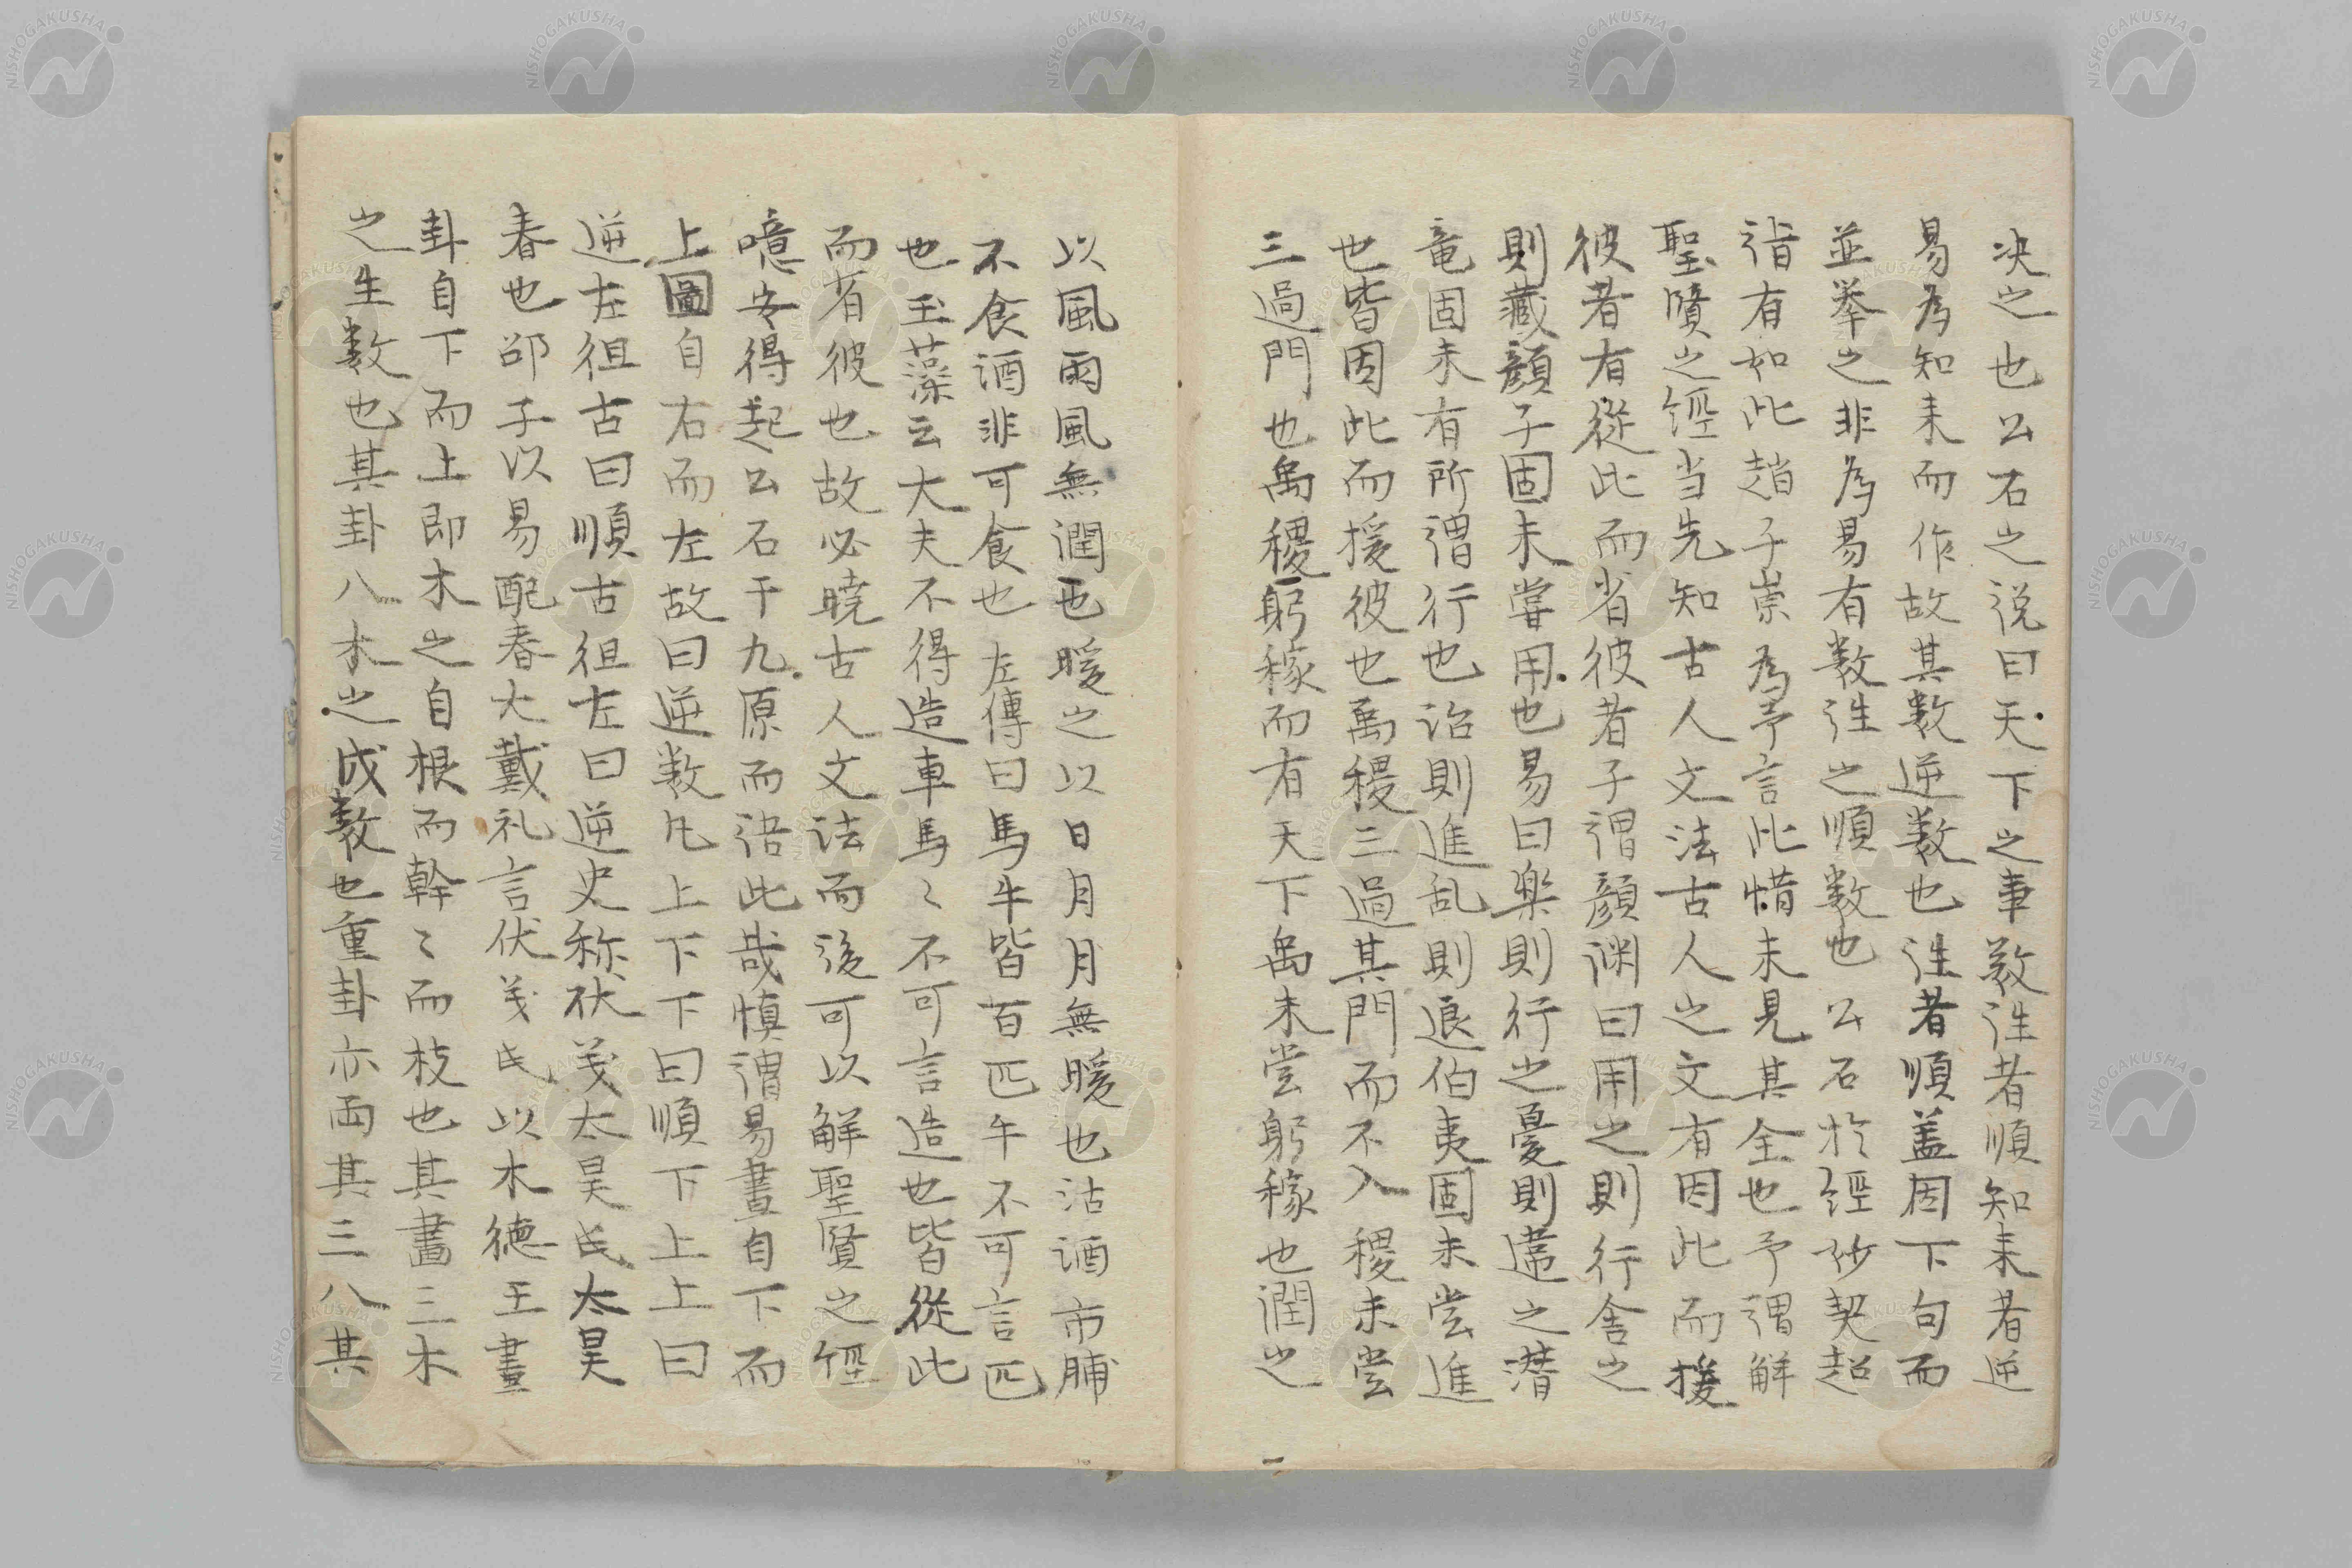 决之也公石之説曰天下之事数徃者順知未者逆
易為知未而作故其数逆数也徃者順盖因下句而
並挙之非為易有数徃之順数也公石於經妙契超
詣有如此趙子崇為予言此惜未見其全也予謂解
聖賢之經当先知古人文法古人之文有因此而援
彼者有從此而省彼者子謂顔渊曰用之則行舎之
則藏顔子固未嘗用也易曰楽則行之憂則違之潜
竜固未有所謂行也治則進乱則退伯夷固未尝進
也皆因此而援彼也禹稷三過其門而不入稷未尝
三過門也禹稷躬稼而有天下禹未尝躬稼也潤之
以風雨風無潤也暖之以日月月無暖也沽酒市脯
不食酒非可食也左傳曰馬牛皆百匹牛不可言匹
也玉藻云大夫不得造車馬〻不可言造也皆從此
而省彼也故必暁古人文法而後可以解聖賢之經
噫安得起公石于九原而語此哉慎謂易畫自下而
上圖自右而左故曰逆数凡上下下曰順下上上曰
逆左徂古曰順古徂左曰逆史称伏羲太昊氏太昊
春也邵子以易配春大戴礼言伏羲氏以木德王畫
卦自下而上即木之自根而幹〻而枝也其畫三木
之生数也其卦八木之成数也重卦亦両其三八其